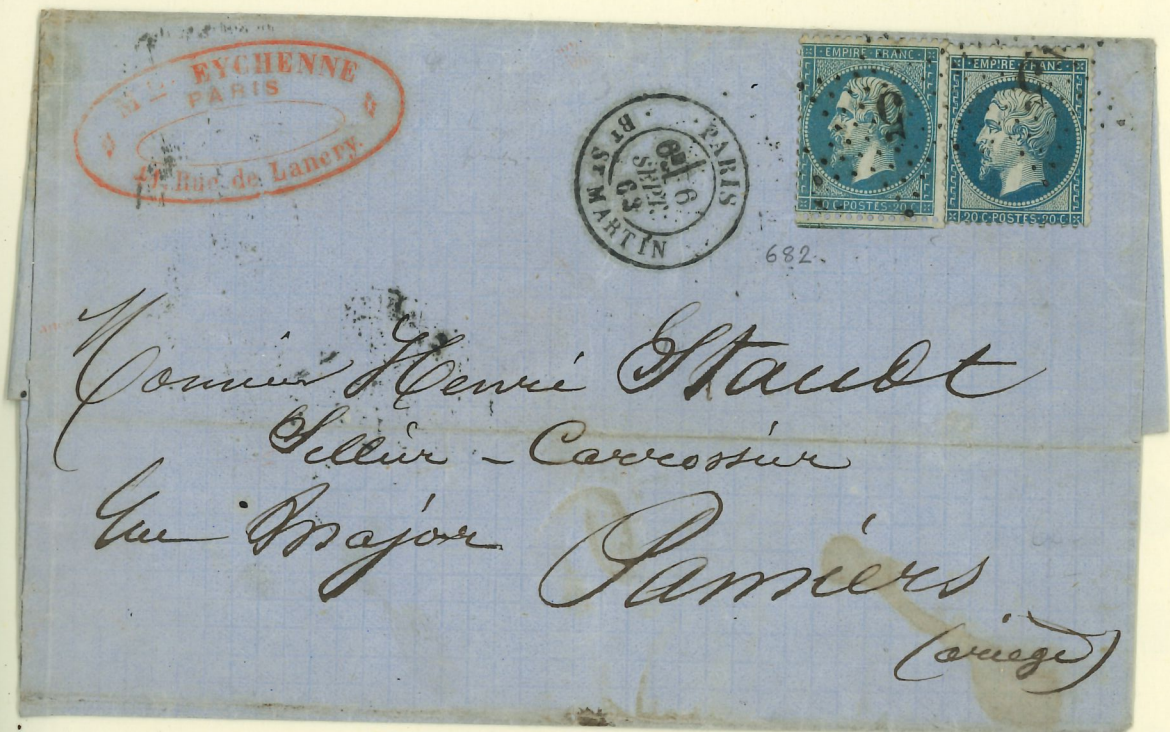 Mon EYCHENNE
PARIS
Rue de Lancry
PARIS
6 SEPT. 63
Bt ST MARTIN
EMPIRE FRANC
20 C·POSTES·20 C
EMPIRE FRANC
20 C·POSTES·20 C
682
Monsieur Henri Staudt
Sellier - Carrossier
Rue Major Pamiers
(ariege)